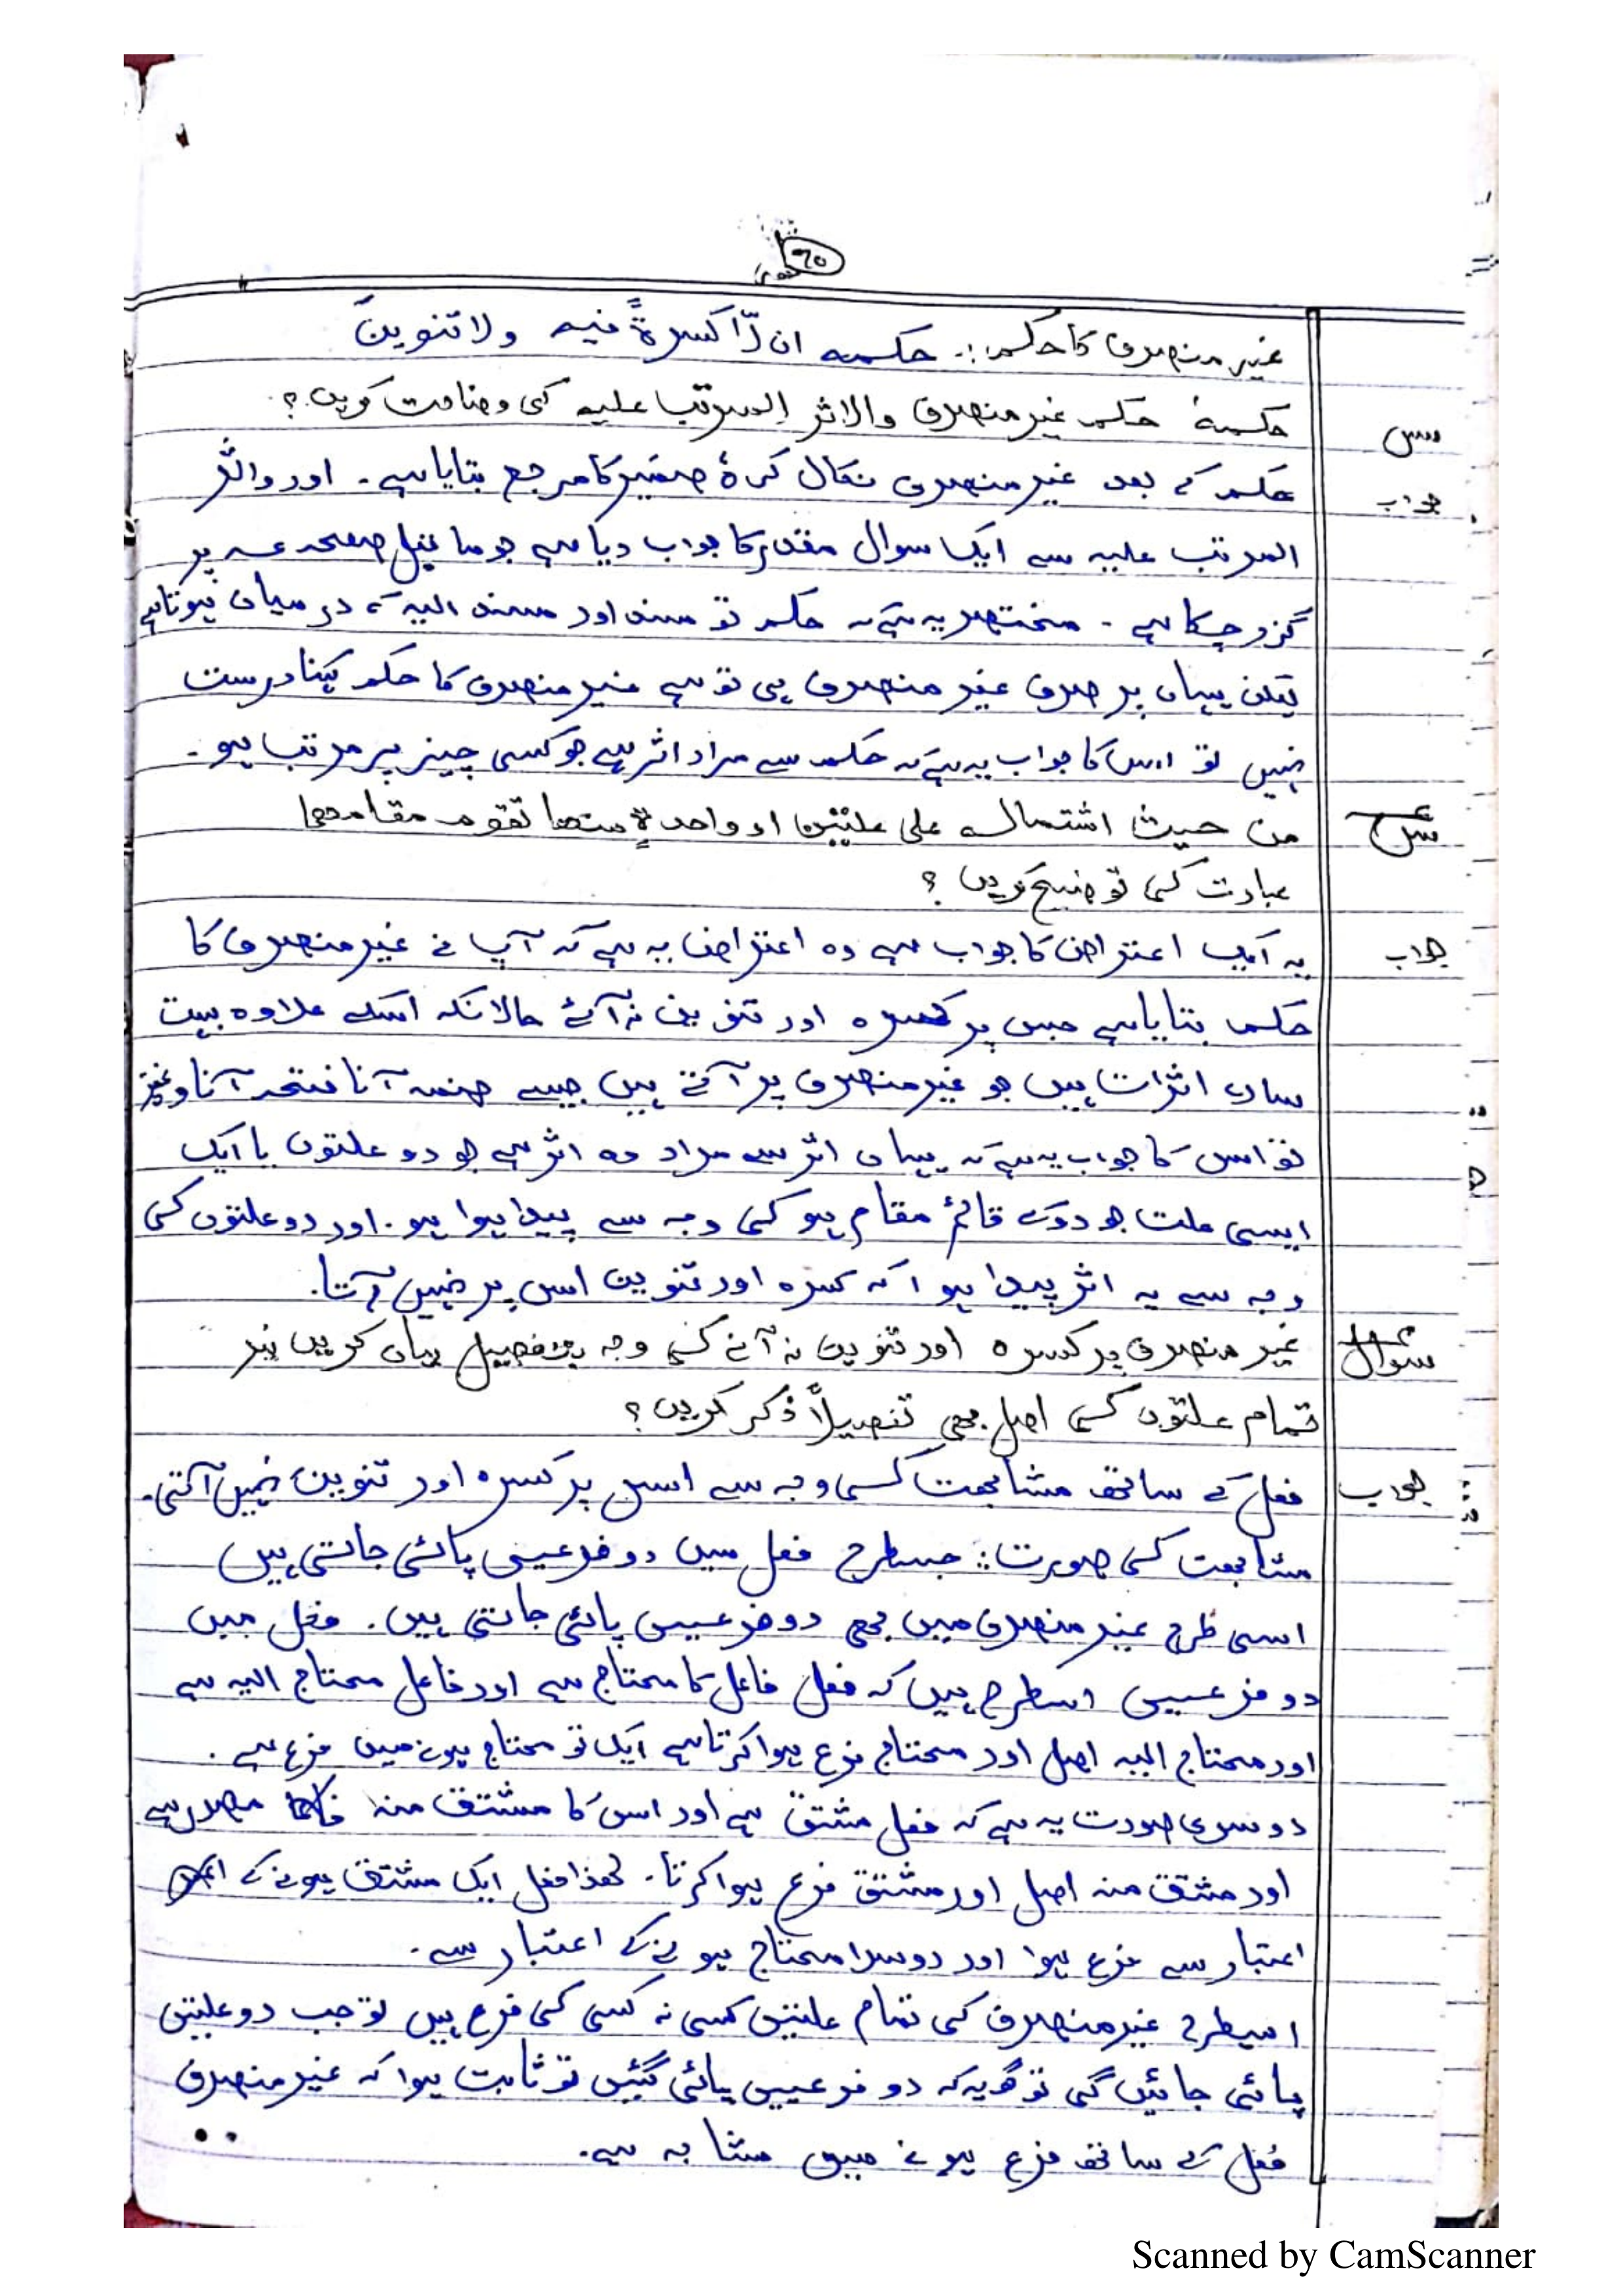 ۹۵
غیر منصرف کا حکم :. حکمہ ان لّا کسرۃً فیہ ولا تنوینَ
س حکمہٗ حکم غیر منصرف والاثر المرتب علیہ کی وضاحت کریں؟
جواب حکم کے بعد غیر منصرف نکال کر ہٗ ضمیر کا مرجع بتایا ہے۔ اور والاثر
المرتب علیہ سے ایک سوال مقدر کا جواب دیا ہے جو ما قبل صفحہ پر
گزر چکا ہے ۔ مختصر یہ ہے کہ حکم تو مسند اور مسند الیہ کے درمیان ہوتا ہے
لیکن یہاں پر صرف غیر منصرف ہی تو ہے غیر منصرف کا حکم کہنا درست
نہیں تو اس کا جواب یہ ہے کہ حکم سے مراد اثر ہے جو کسی چیز پر مرتب ہو۔
س من حیث اشتمالہ علی علتین او واحدۃٍ منھا تقوم مقامھما
عبارت کی توضیح کریں ؟
جواب یہ ایک اعتراض کا جواب ہے وہ اعتراض یہ ہے کہ آپ نے غیر منصرف کا
حکم بتایا ہے جس پر کسرہ اور تنوین نہ آئے حالانکہ اسکے علاوہ بہت
سارے اثرات ہیں جو غیر منصرف پر آتے ہیں جیسے ضمہ آنا فتحہ آنا وغیرہ
تو اس کا جواب یہ ہے کہ یہاں اثر سے مراد وہ اثر ہے جو دو علتوں یا ایک
ایسی علت جو دو کے قائم مقام ہو کی وجہ سے پیدا ہوا ہو۔ اور دو علتوں کی
وجہ سے یہ اثر پیدا ہوا کہ کسرہ اور تنوین اس پر نہیں آتا۔
سوال غیر منصرف پر کسرہ اور تنوین نہ آنے کی وجہ بالتفصیل بیان کریں نیز
تمام علتوں کی اصل بھی تفصیلاً ذکر کریں؟
جواب فعل کے ساتھ مشابھت کی وجہ سے اس پر کسرہ اور تنوین نہیں آتی۔
مشابھت کی صورت :. جسطرح فعل میں دو فرعیں پائی جاتی ہیں
اسی طرح غیر منصرف میں بھی دو فرعیں پائی جاتی ہیں۔ فعل میں
دو فرعیں اسطرح ہیں کہ فعل فاعل کا محتاج ہے اور فاعل محتاج الیہ ہے
اور محتاج الیہ اصل اور محتاج فرع ہوا کرتا ہے ایک تو محتاج ہونے میں فرع ہے ۔
دوسری صورت یہ ہے کہ فعل مشتق ہے اور اس کا مشتق منہ مصدر ہے
اور مشتق منہ اصل اور مشتق فرع ہوا کرتا۔ لھذا فعل ایک مشتق ہونے کے
اعتبار سے فرع ہوا اور دوسرا محتاج ہونے کے اعتبار سے۔
اسیطرح غیر منصرف کی تمام علتیں کسی نہ کسی کی فرع ہیں تو جب دو علتیں
پائی جائیں گی تو گویہ کہ دو فرعیں پائی گئیں تو ثابت ہوا کہ غیر منصرف
فعل کے ساتھ فرع ہونے میں مشابہ ہے۔
Scanned by CamScanner